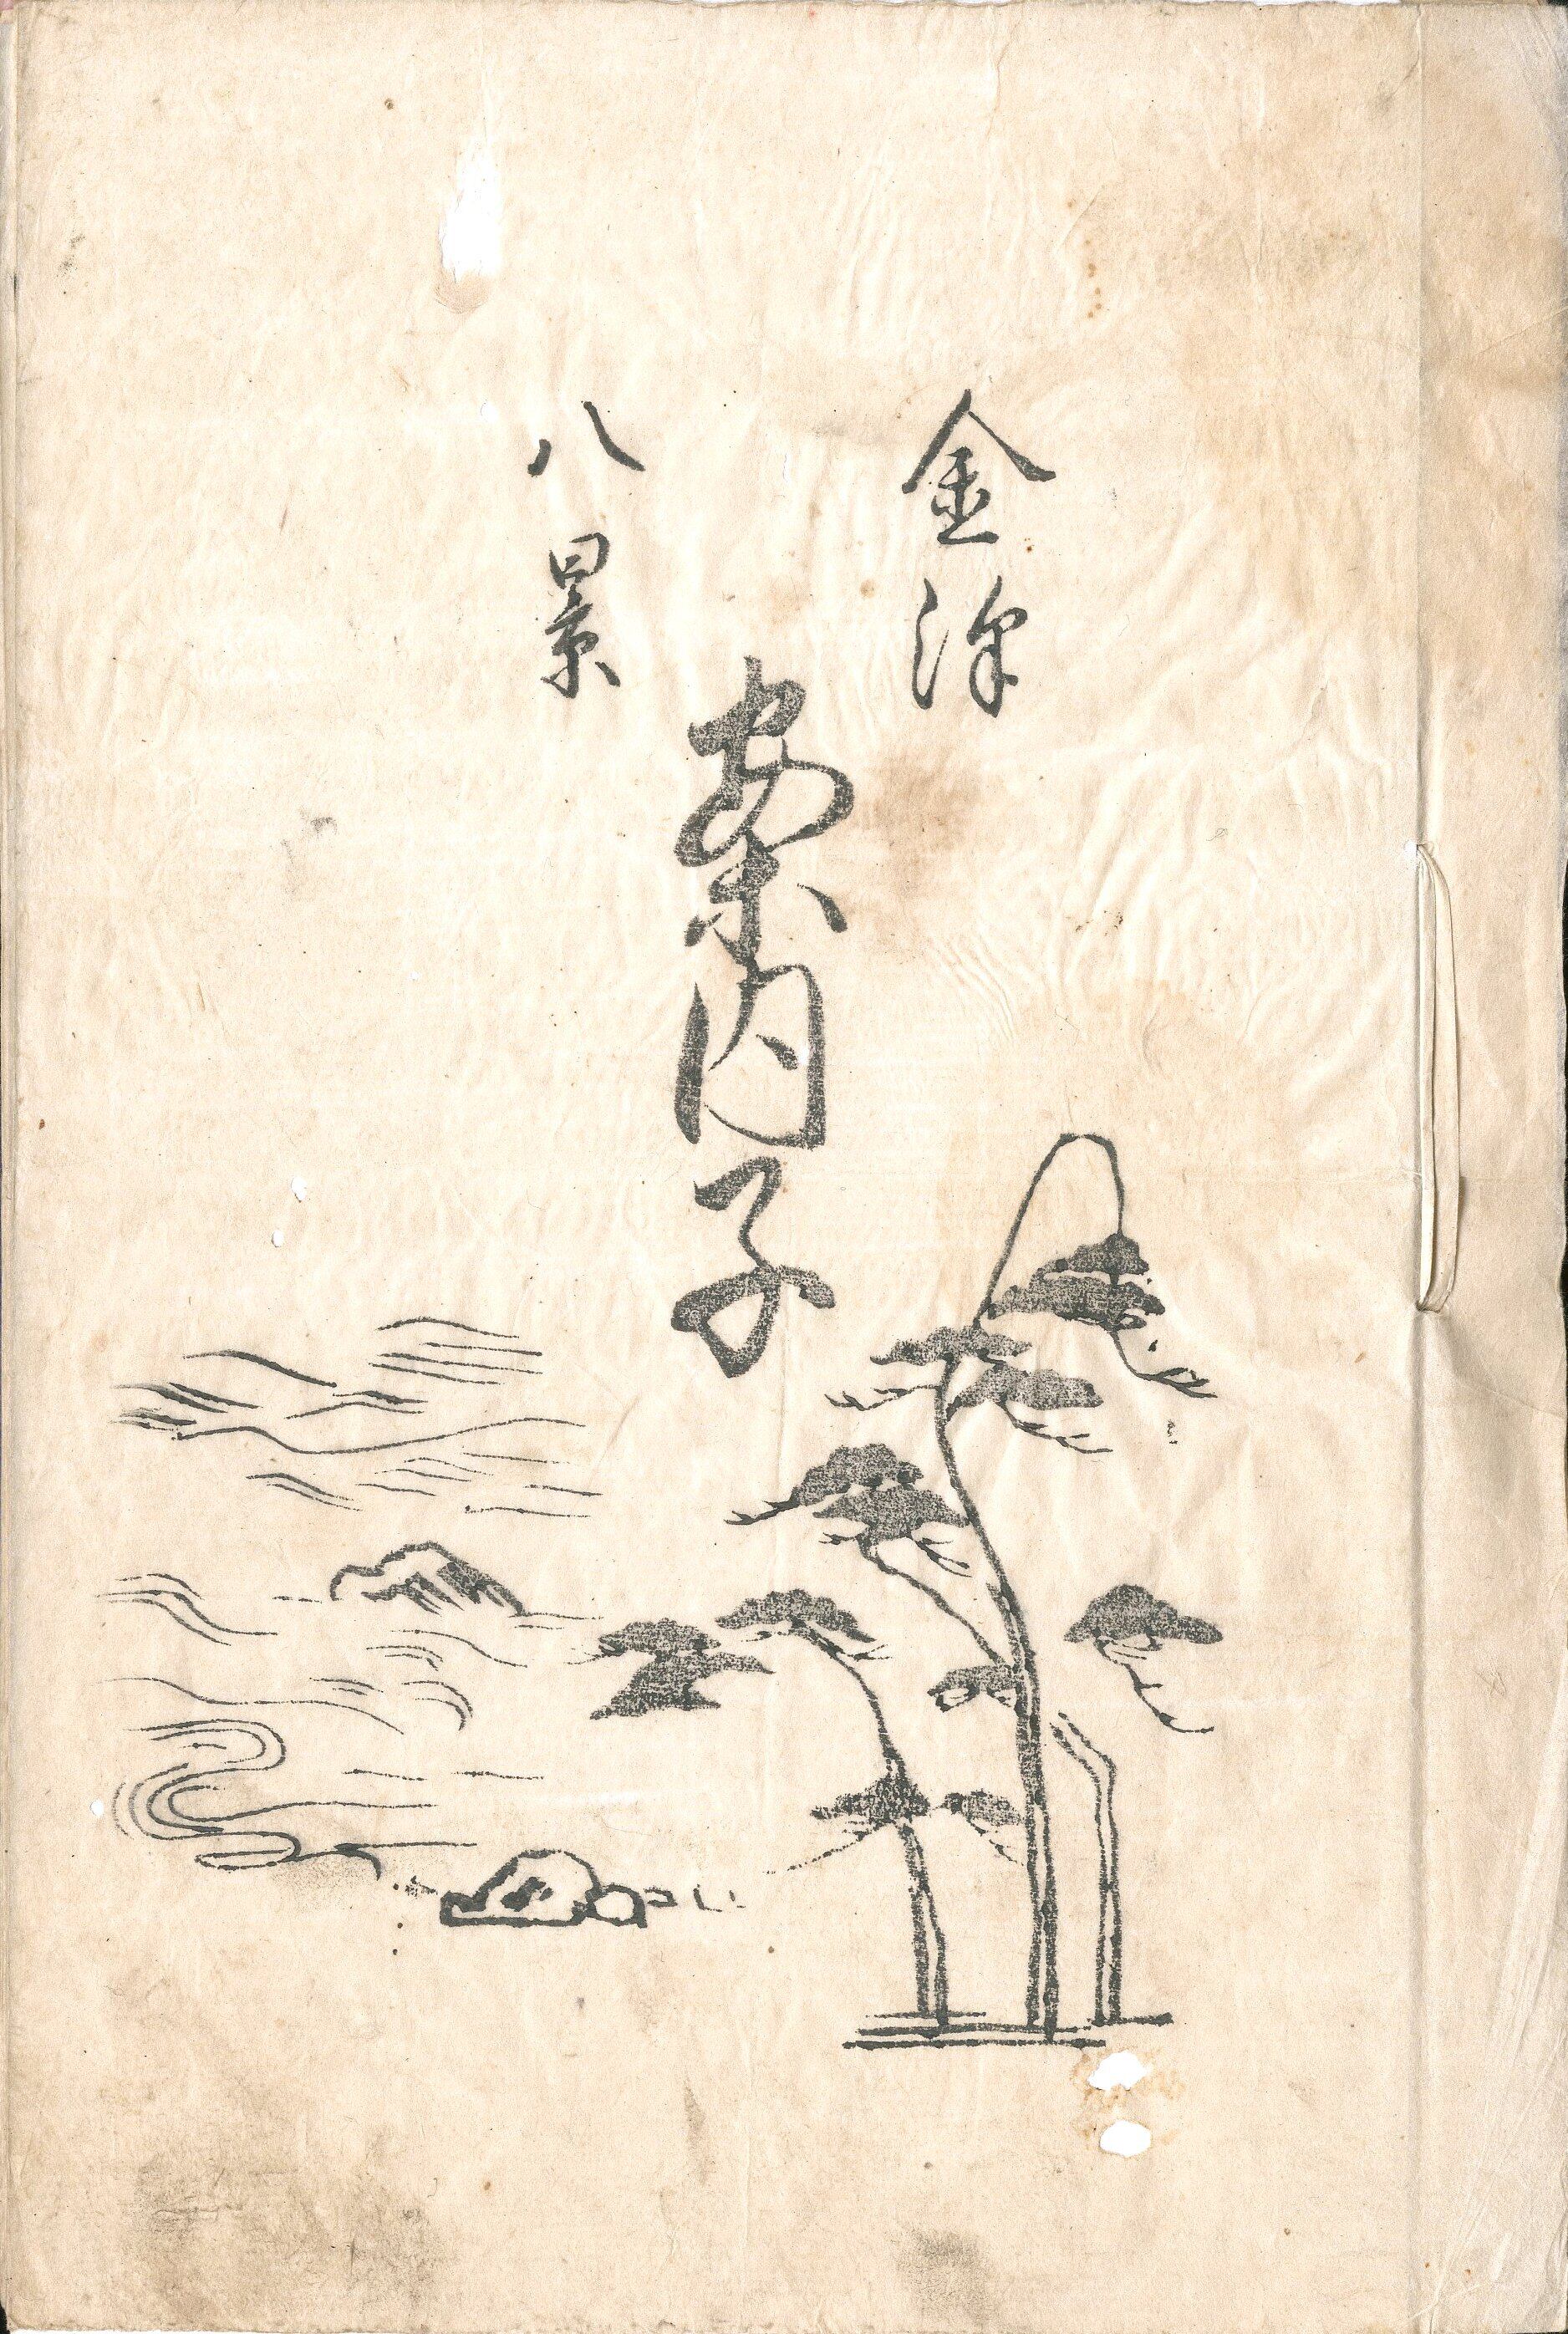 金澤
八景
案内子